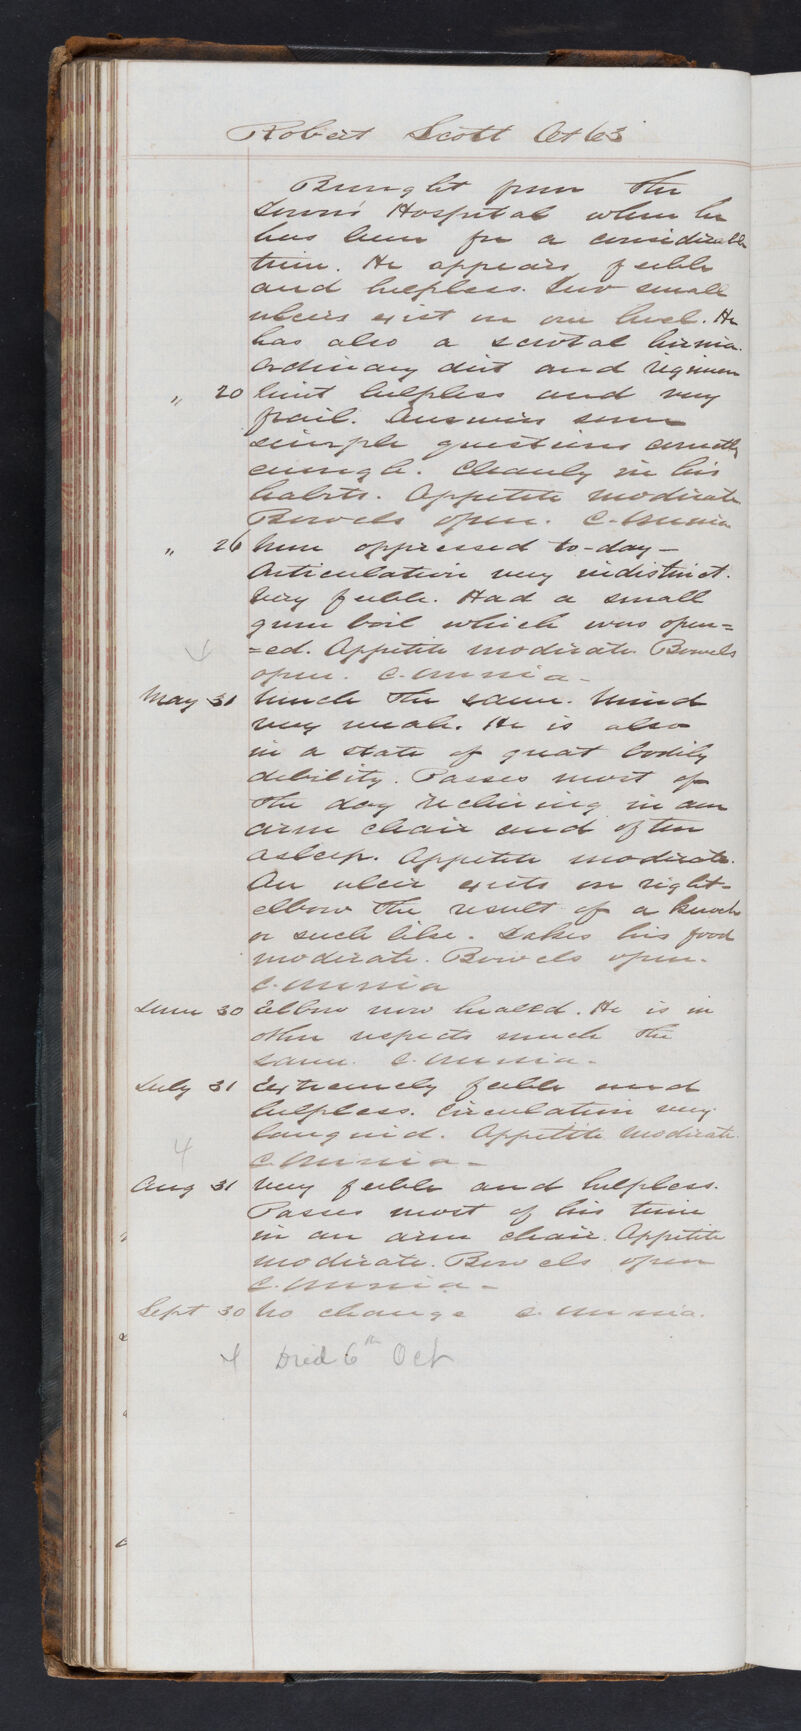 Robert Scott Æt 63
Brought from the
Town's Hospital where he
has been for a considerable
time. He appears feeble
and helpless. Two small
ulcers exist on one heel. He
has also a scrotal hernia.
Ordinary diet and regimen
" 20 Quiet helpless and very
frail. Answers some
simple questions correctly
enough. Cleanly in his
habits. Appetite moderate
Bowels open.
" 26 More oppressed to-day -
Articulation very indistinct.
Very feeble. Had a small
gum boil which was open=
=ed. Appetite moderate. Bowels
4
open.
May 31 Much the same. Mind
very weak. He is also
in a state of great bodily
debility. Passes most of
the day reclining in an
arm chair and often
asleep. Appetite moderate.
An ulcer exists on right-
elbow the result of a knock
or such like. Takes his food
moderate. Bowels open.
June 30 Elbow now healed. He is in
other respects much the
same.
July 31 Extremely feeble and
helpless. Circulation very
languid. Appetite moderate.
4
Aug 31 Very feeble and helpless.
Passes most of his time
in an arm chair. Appetite
moderate. Bowels open
Sept 30 No change
4 Died 6th Oct